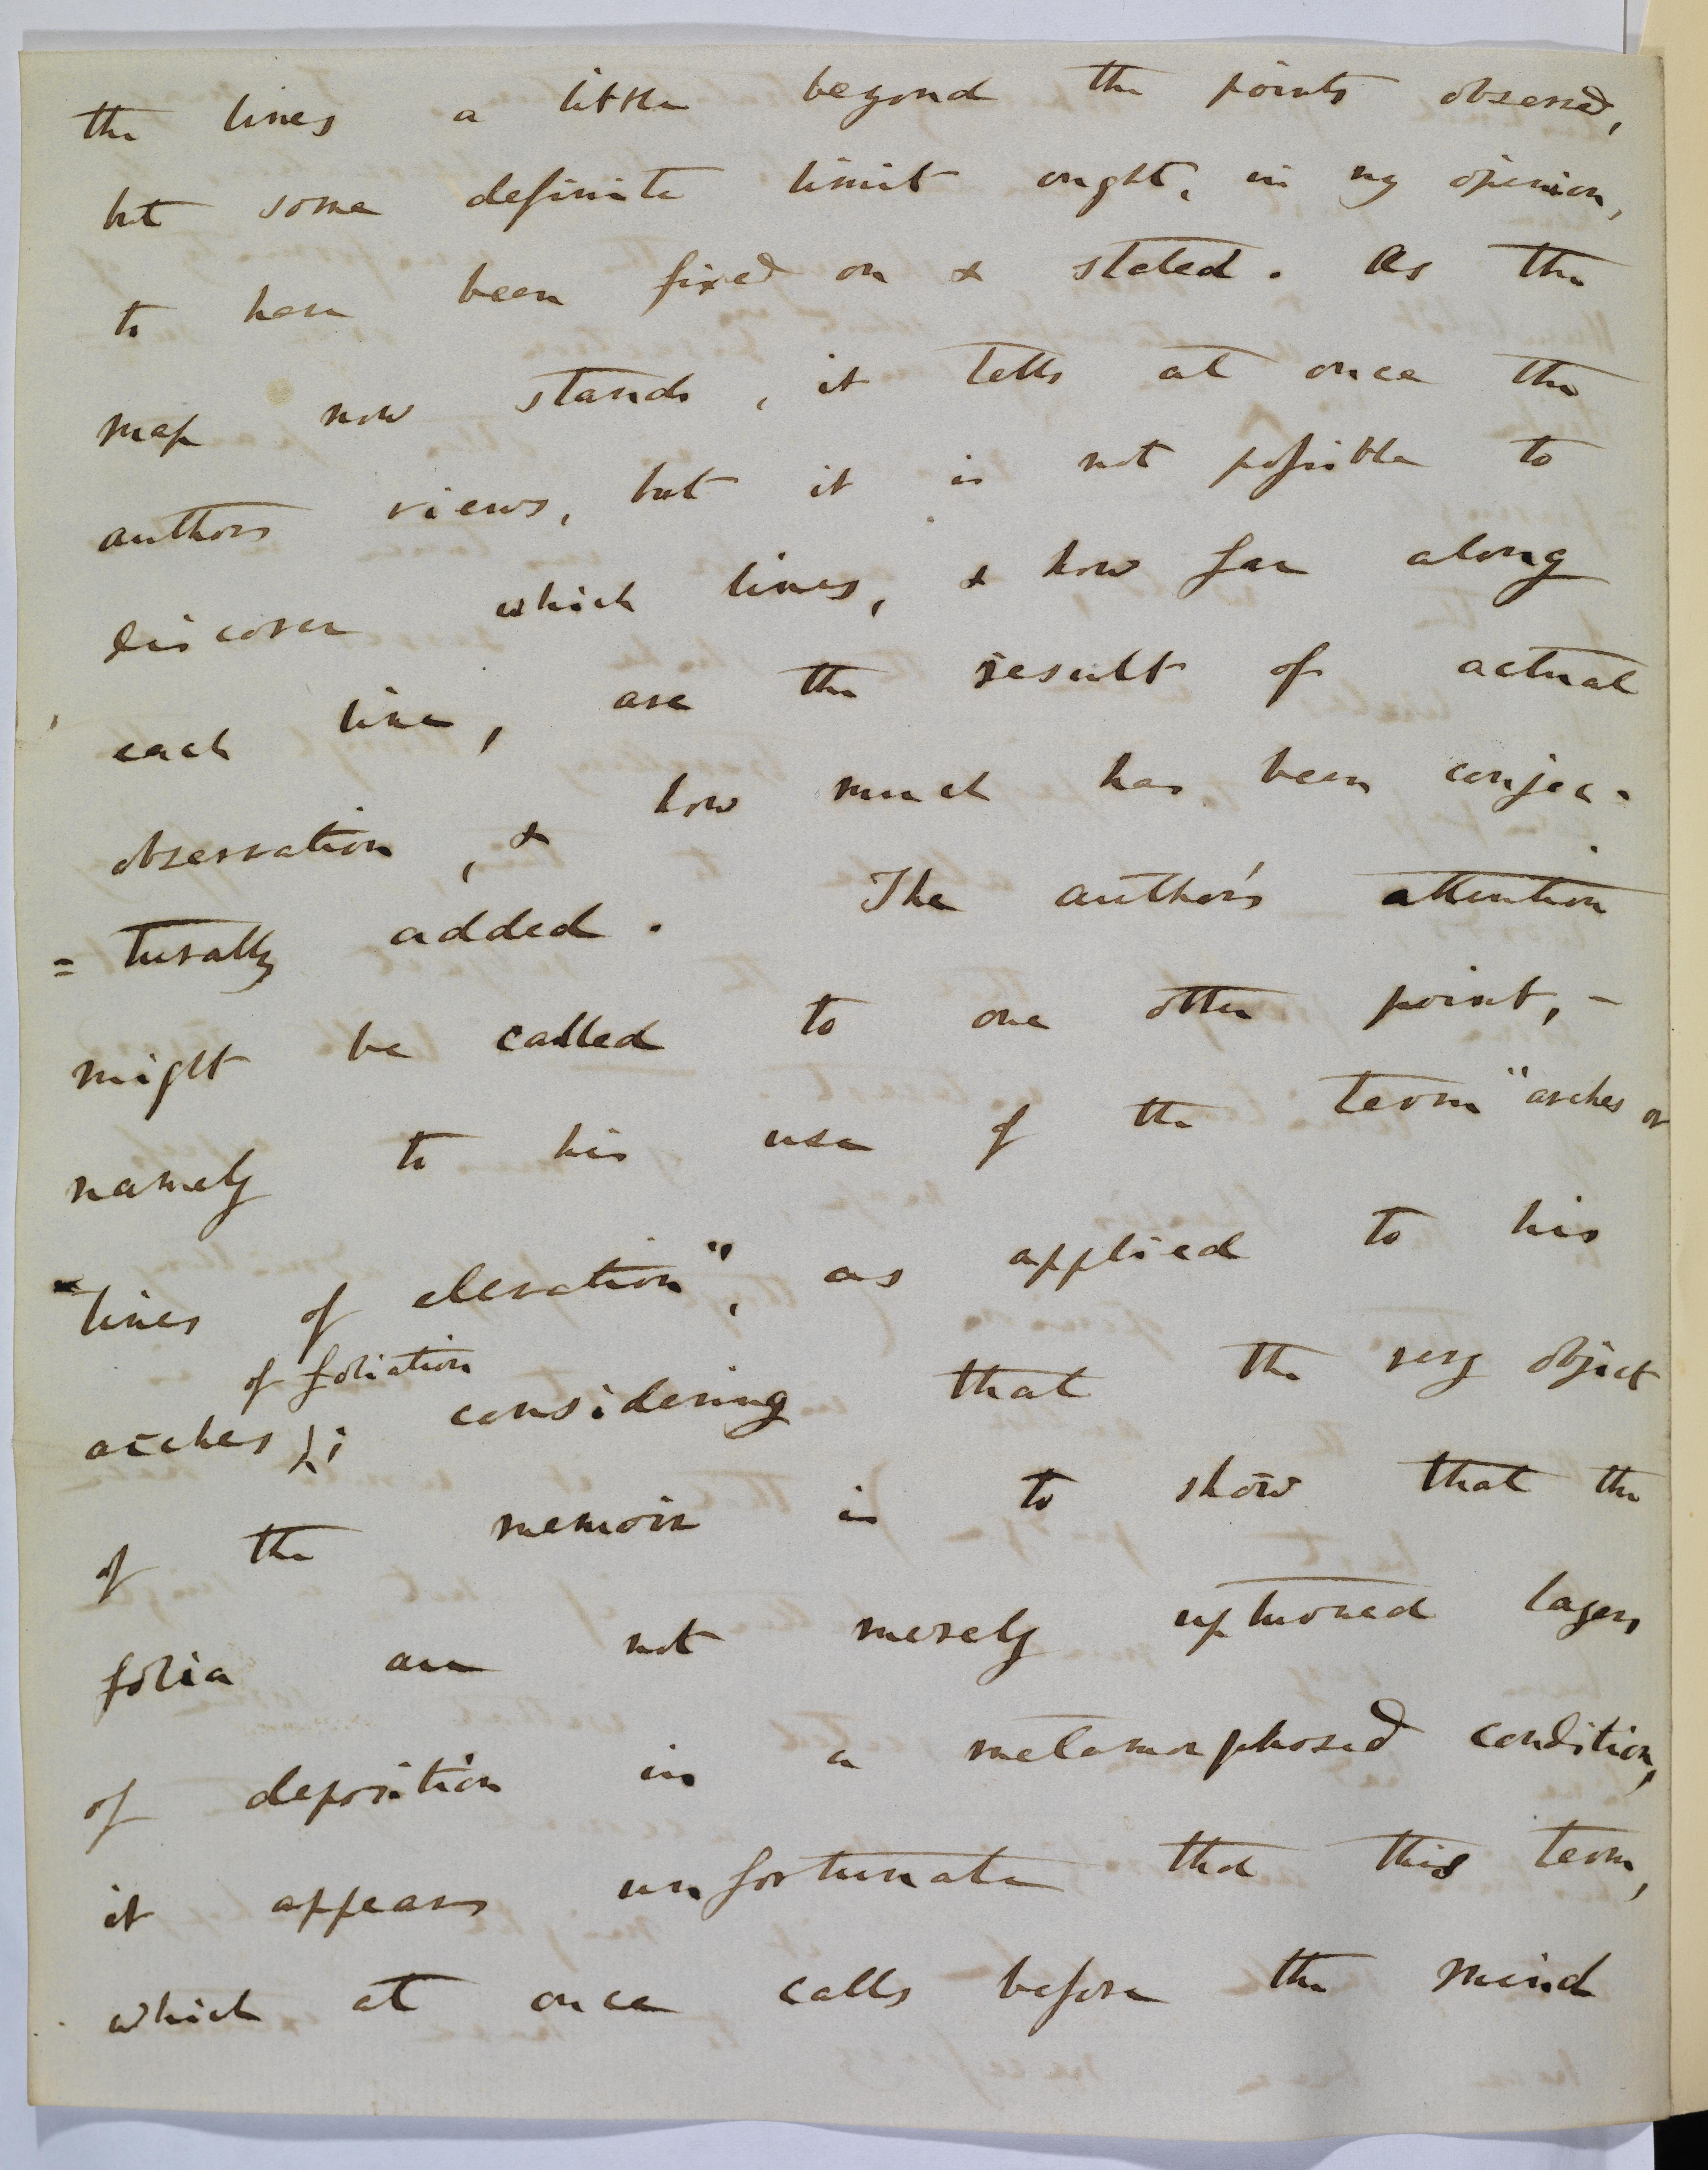 the lines a little beyond the points observed,
but some definite limit ought, in my opinion,
to have been fixed on & stated. As the
map now stands, it tells at once the
authors views, but it is not possible to
discover which lines, & how far along
each line, are the result of actual
observation, & how much has been conjec-
=turally added. The author's attention
might be called to one other point, –
namely to his use of the term "arches or
"lines of elevation", as applied to his
of foliation
arches; considering that the very object
of the memoir is to show that the
folia are not merely upturned layers
of deposition in a metamorphosed condition,
it appears unfortunate that this term,
which at once calls before the mind